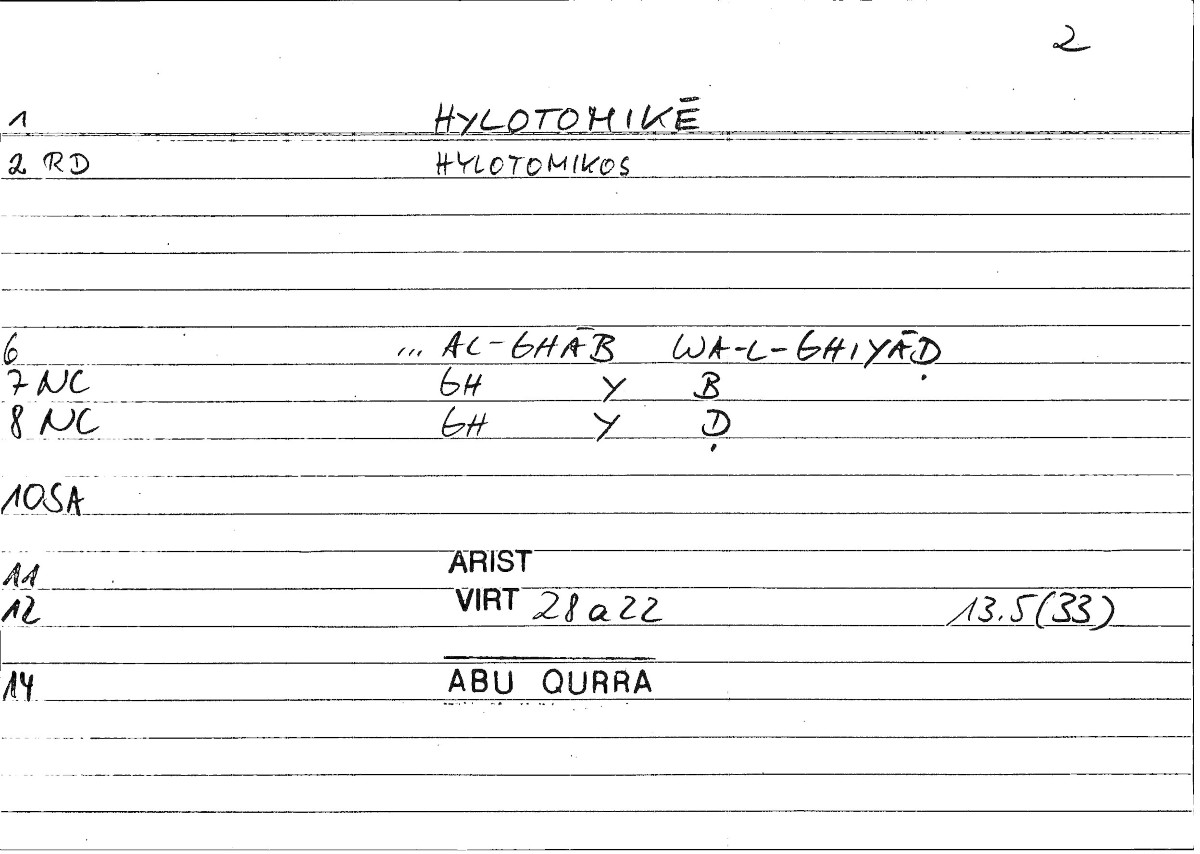 2
1 HYLOTOMIKĒ
2 RD HYLOTOMIKOS
6 ... AL-GHĀB WA-L-GHIYĀḌ
7 NC GH Y B
8 NC GH Y Ḍ
10 SA
11 ARIST
12 VIRT 28a22 13.5(33)
14 ABU QURRA